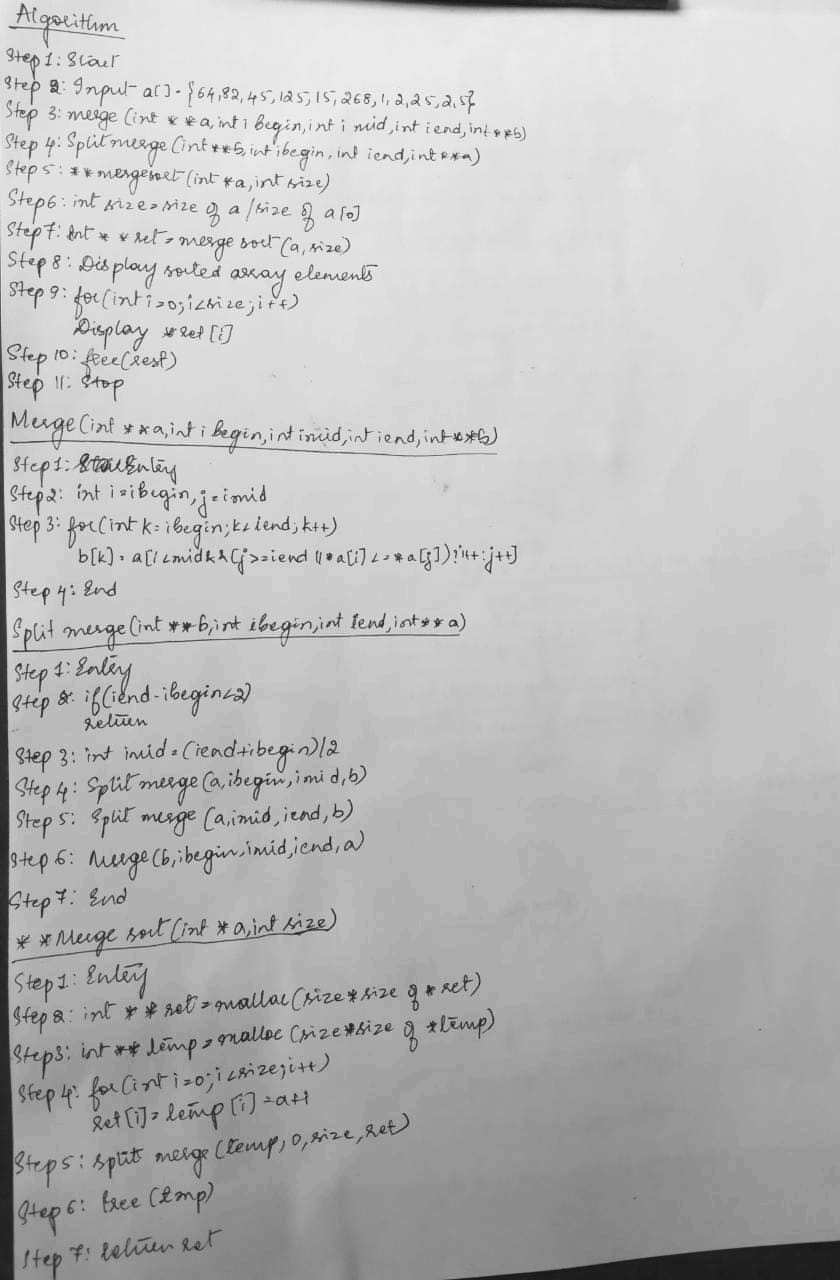 Algorithm
Step 1: Start
Step 2: Input a[] = {64,82,45,125,15,268,1,2,25,2,5}
Step 3: merge (int **a,int i begin,int i mid,int iend,int **b)
Step 4: Split merge (int**b,int ibegin, int iend,int**a)
Step 5: **mergesort(int *a,int size)
Step6: int size=size of a/size of a[0]
Step7: Int **ret=merge sort(a,size)
Step 8: Display sorted array elements
Step 9: for(int i=0;i<size;i++)
Display *ret[i]
Step 10: free(rest)
Step 11: Stop
Merge(int **a,int i begin,int imid,int iend,int**b)
Step1: Entry
Step2: int i=ibegin,j=imid
Step 3: for(int k=ibegin;k<iend;k++)
b[k] = a[i<mid&&(j>=iend ||*a[i]<=*a[j])?i++:j++]
Step 4: End
Split merge(int **b,int ibegin,int iend,int**a)
Step 1: Entry
Step 2: if(iend-ibegin<2)
return
Step 3: int imid=(iend+ibegin)/2
Step 4: Split merge(a,ibegin,imid,b)
Step 5: Split merge (a,imid,iend,b)
Step 6: Merge(b,ibegin,imid,iend,a)
Step 7: End
**Merge sort(int *a,int size)
Step 1: Entry
Step 2: int **ret=malloc(size*size of *ret)
Step3: int **temp=malloc (size*size of *temp)
Step 4: for(int i=0;i<size;i++)
ret[i]=temp[i]=a+i
Step 5: split merge(temp,0,size,ret)
Step 6: free (tmp)
Step 7: return ret